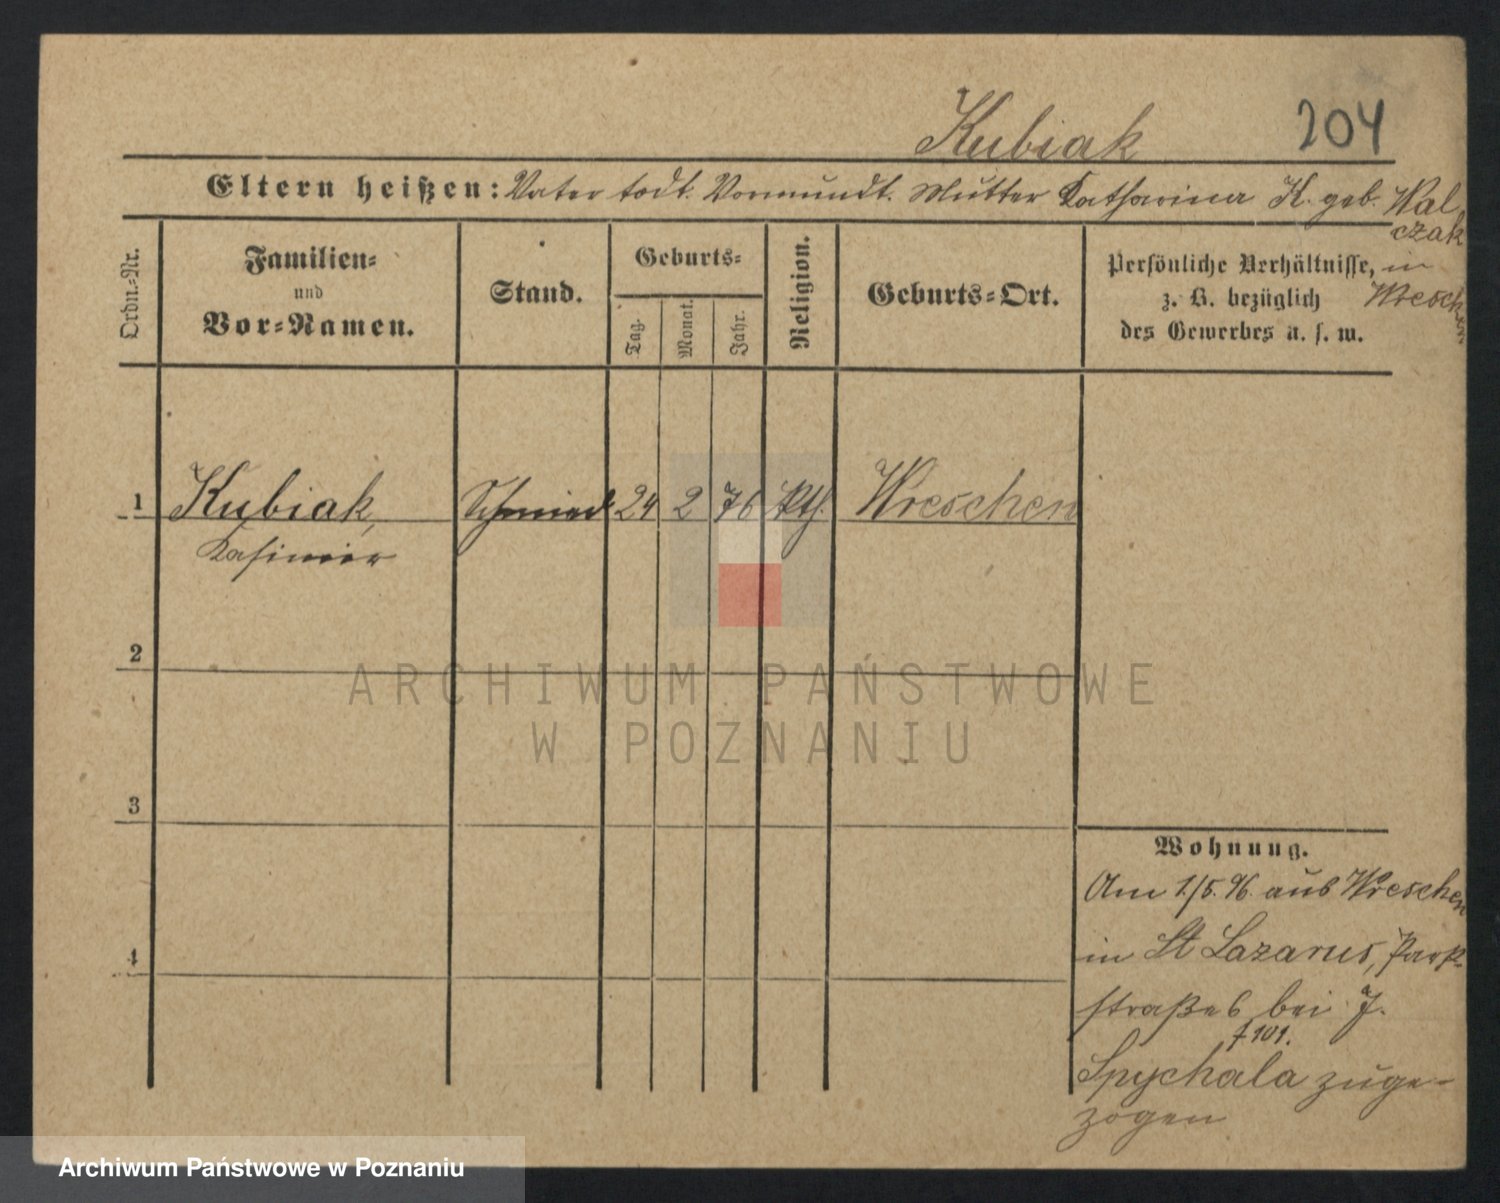 Kubiak 204
Eltern heißen: Vater todt. Vormundt. Mutter Katharina K. geb. Wal
czak
in
Wreschen
Ordn.-Nr.
Familien-
und
Vor-Namen.
Stand.
Geburts-
Tag.
Monat.
Jahr.
Religion.
Geburts-Ort.
Persönliche Verhältnisse,
z. B. bezüglich
des Gewerbes u. s. w.
1 Kubiak, Schmied 24 2 76 kth. Wreschen
Kasimir
2
3
4
Wohnung.
Am 1./5. 96. aus Wreschen
in St Lazarus, Park-
straße 6 bei J.
f 101.
Spychala zuge-
zogen
ARCHIWUM PAŃSTWOWE
W POZNANIU
Archiwum Państwowe w Poznaniu